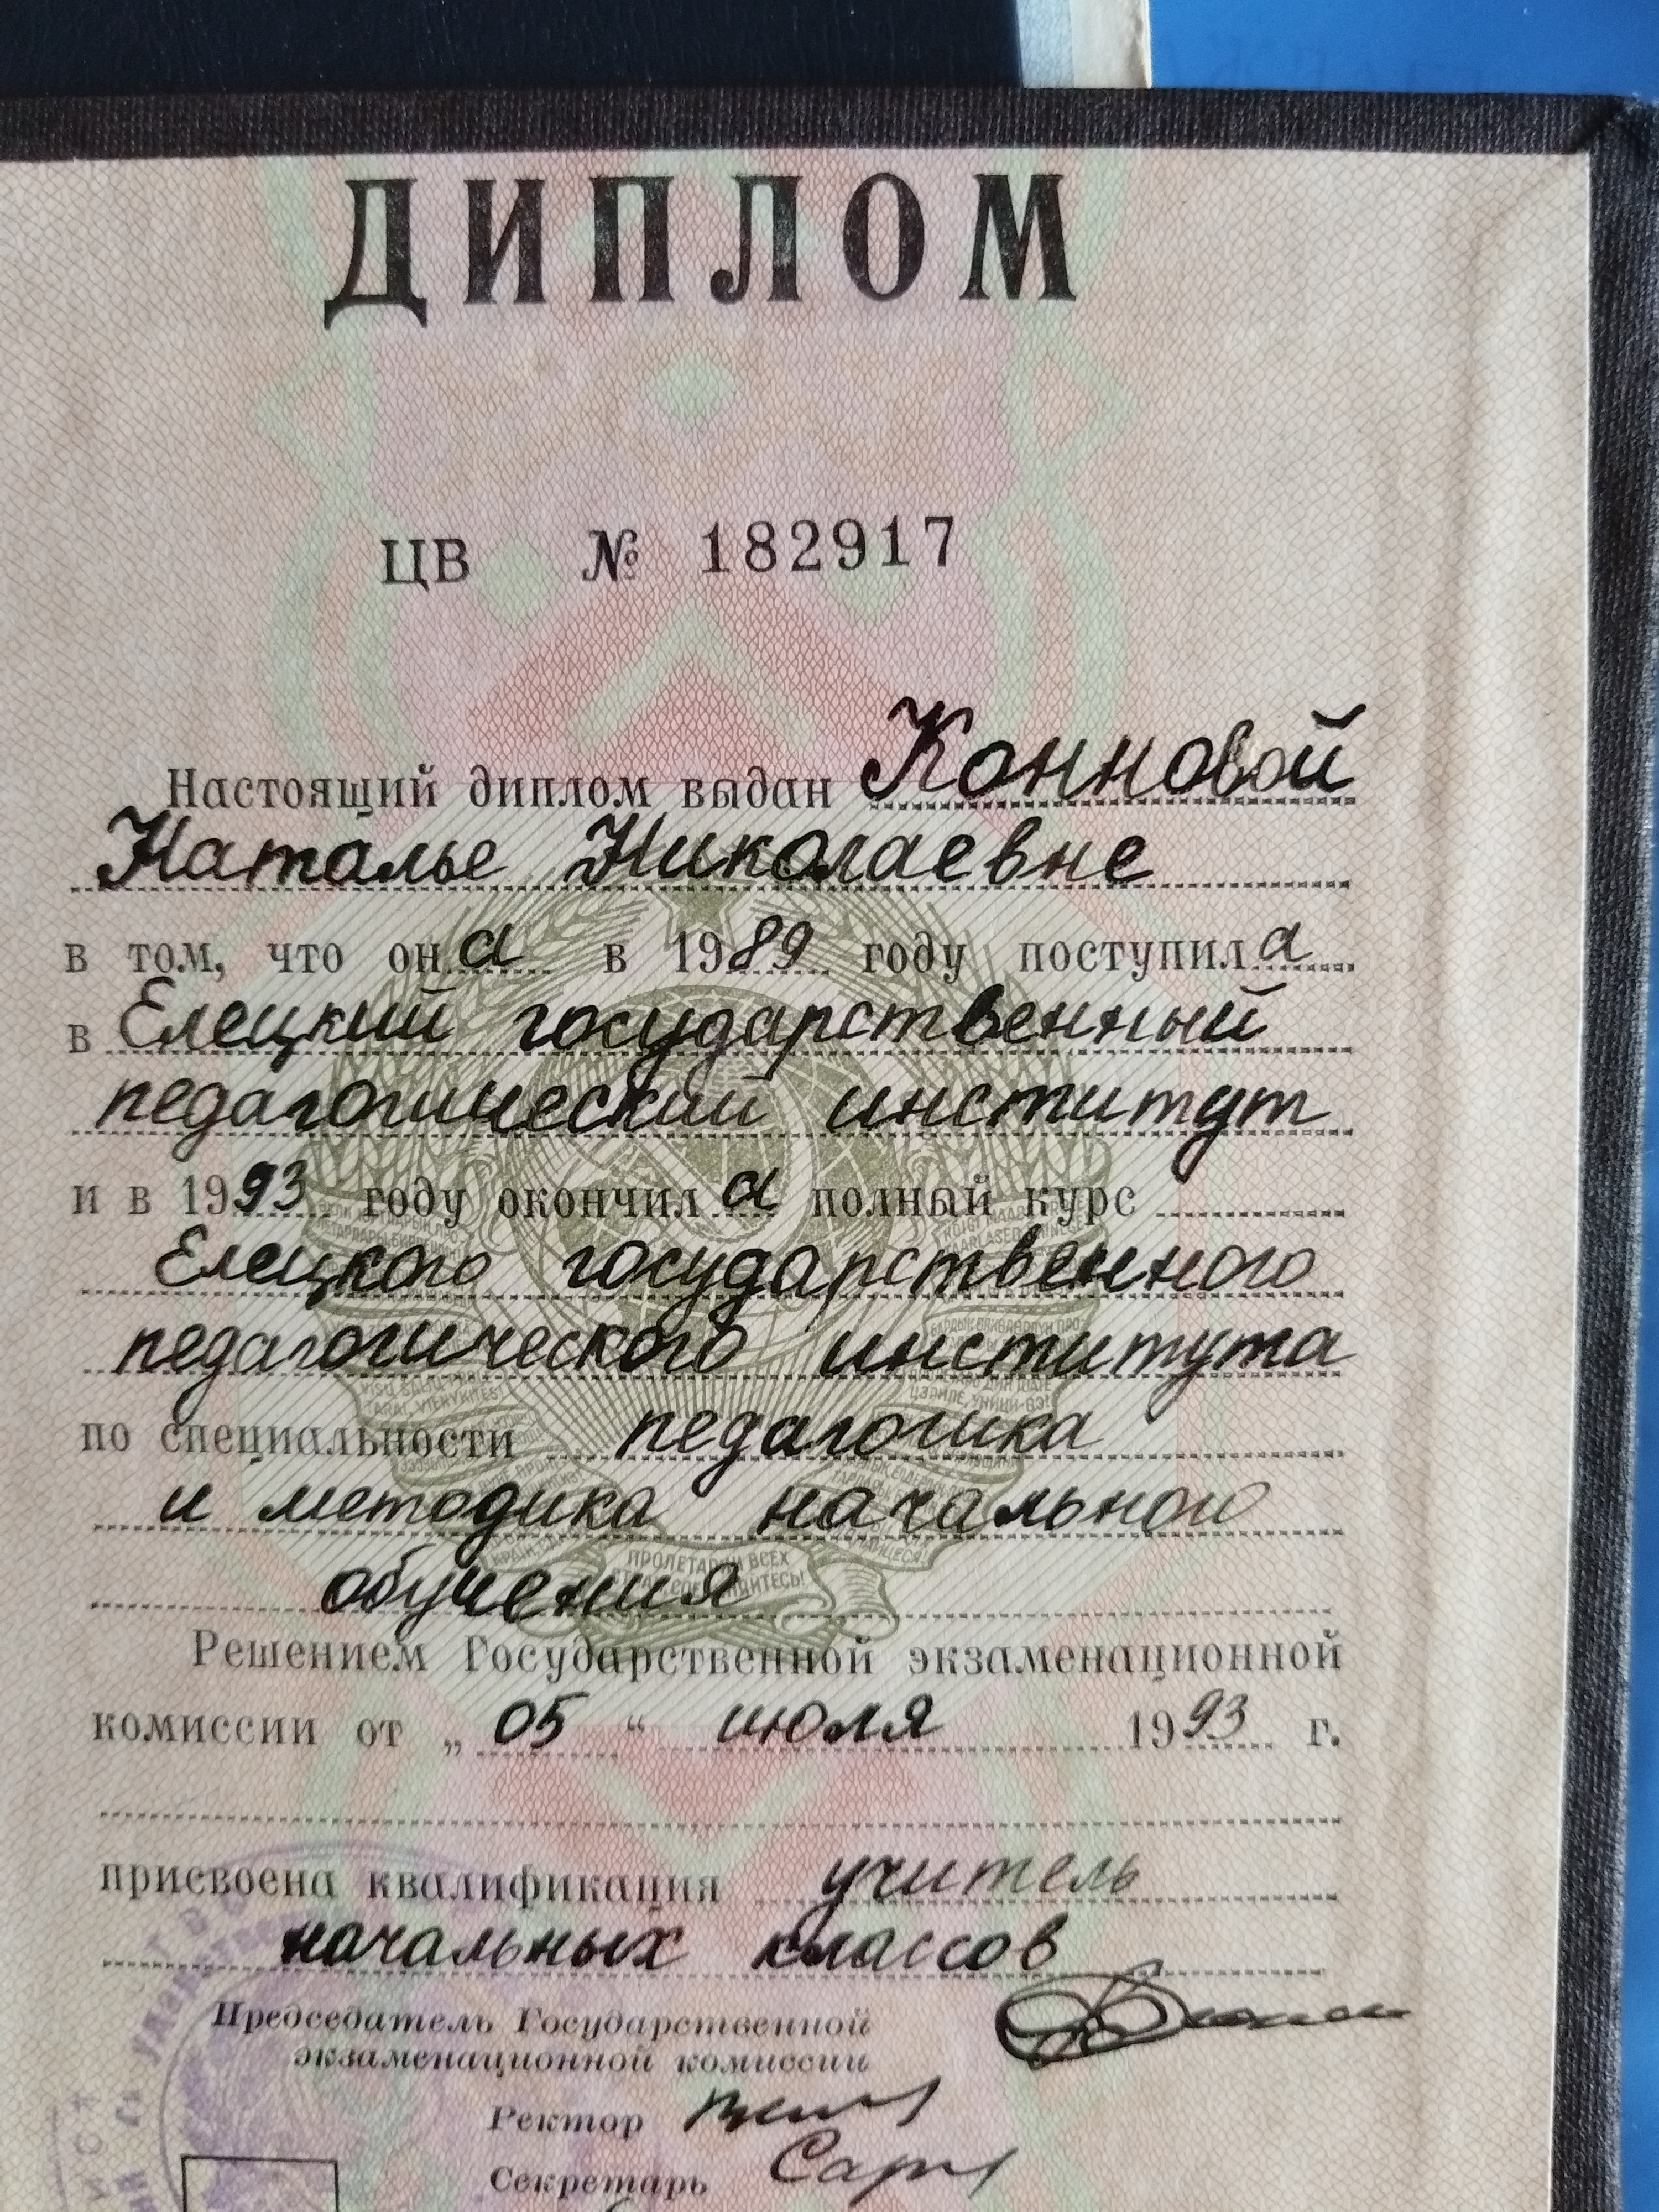 ДИПЛОМ
ЦВ № 182917
Настоящий диплом выдан Конновой
Наталье Николаевне
в том, что он а в 1989 году поступил а
в Елецкий государственный
педагогический институт
и в 1993 году окончил а полный курс
Елецкого государственного
педагогического института
по специальности педагогика
и методика начального
обучения
ПРОЛЕТАРИИ ВСЕХ
Решением Государственной экзаменационной
комиссии от „ 05 “ июля 1993 г.
присвоена квалификация учитель
начальных классов
Председатель Государственной
экзаменационной комиссии
Ректор
Секретарь